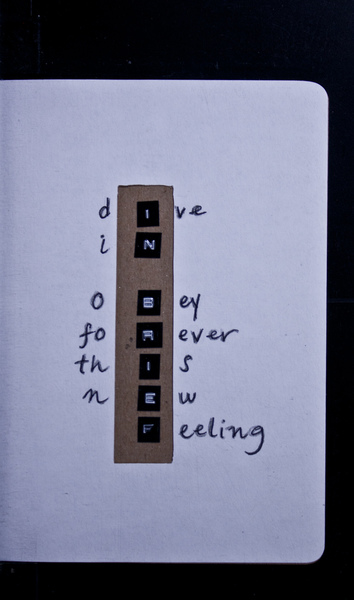 dIve
iN
OBey
foRever
thIs
nEw
Feeling